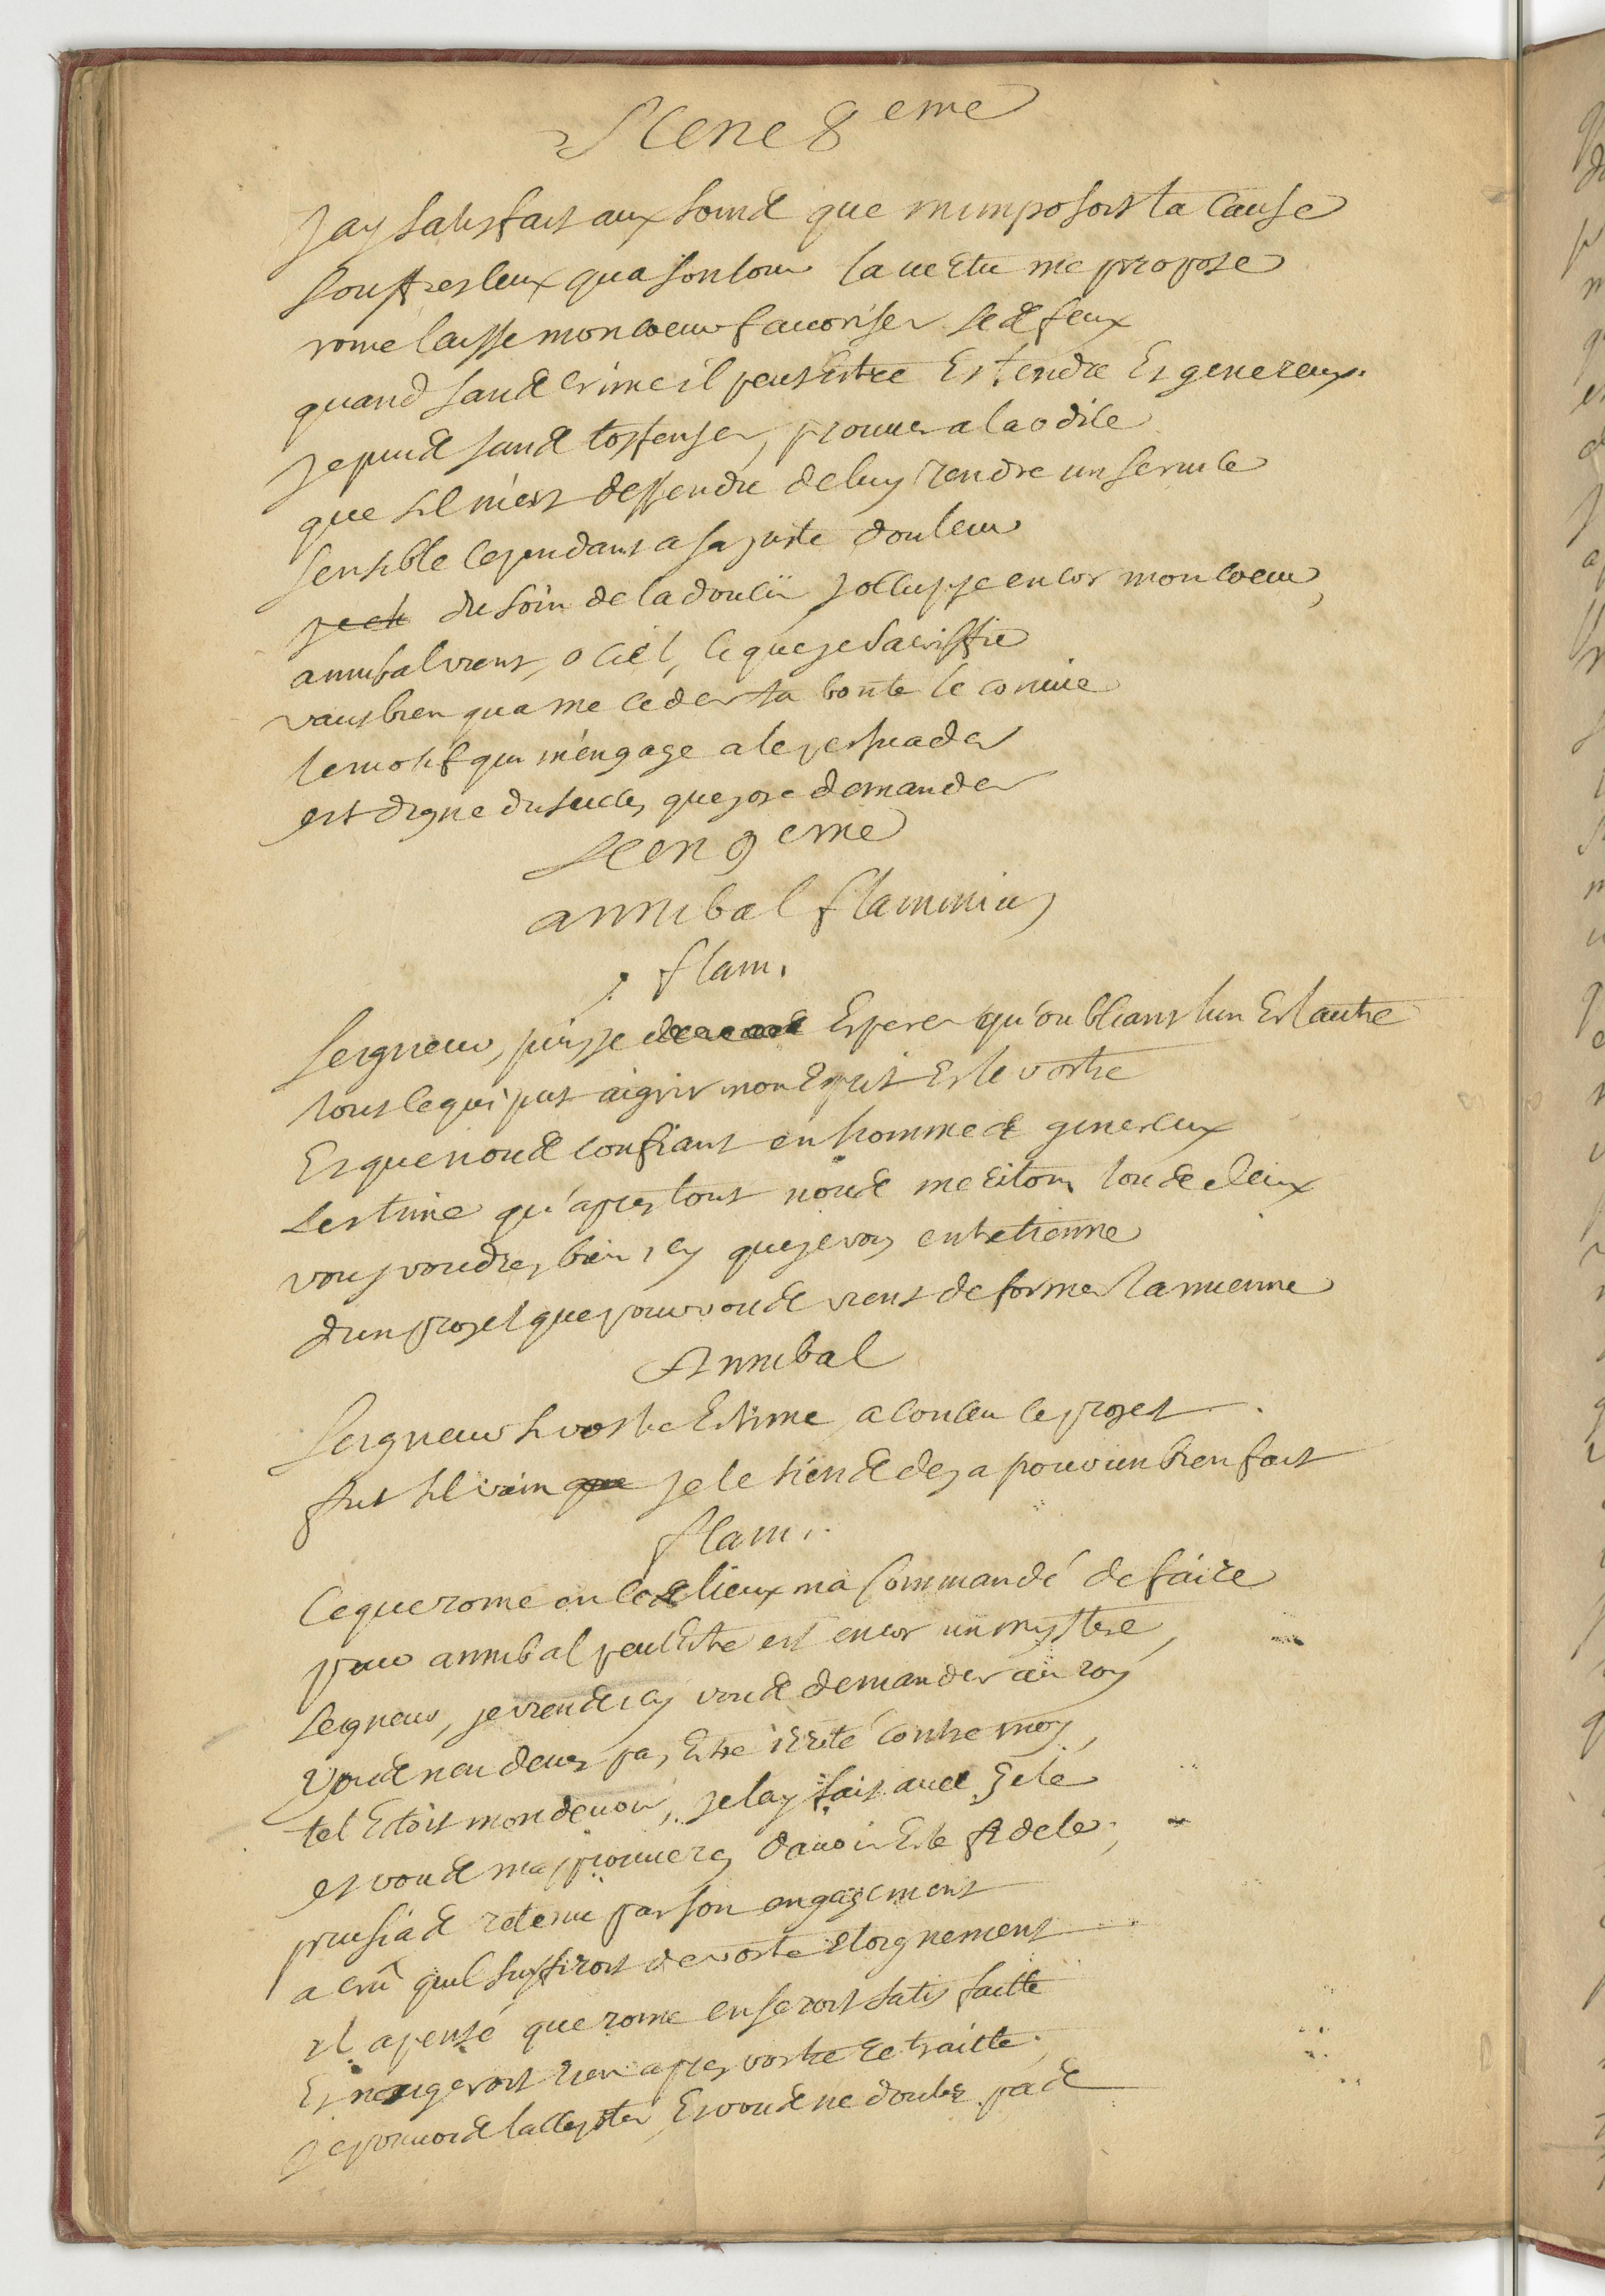 Scene 8eme
Jay satisfait aux soins que mimposoit ta cause
souffres ceux qua son tour la vertu me propose
rome laisse mon coeur favoriser ses feux
quand sans crime il peut estre Et tendre Et genereux.
Je puis sans toffenser, prouver a laodice
que sil m'est deffendu de luy rendre un service
sensible cependant a sa juste douleur
du soin de ladoucir joccuppe encor mon coeur,
annibal vient, o ciel, ce que je sacriffie
vaut bien qua me ceder ta bonté le convie
le motif qui m'engage a le persuader
est digne du succes que jose demander
Scen 9eme
annibal flaminius
flam.
Seigneur, puisje Esperer qu'oubliant lun Et lautre
tout ce qui put aigrir mon Esprit Et le vostre
Et que nous confiant en hommes genereux
Lestime qu'apres tout nous meritons tous deux
vous voudres bien icy que je vous entretienne
dun projet que pour vous vient de former la mienne
Annibal
Seigneur si vostre Estime a conceu ce projet
fut il vain je le tiens deja pour un bienfait
flam.
Ce que rome en ces lieux ma commandé de faire
pour annibal peut Estre est encor un mystere,
Seigneur, je viens icy vous demander au roy
Vous nen deves pas Estre irrité contre moy,
tel Etoit mon devoir, je lay fait avec Zele
et vous mapprouveres davoir Esté fidele,
prusias retenu par son engagement
a crû quil suffiroit de vostre Eloignement
Il a pensé que rome en seroit satisfaitte
Et nexigeroit rien apres vostre retraitte.
Je pouvois laccepter, Et vous ne doutes pas